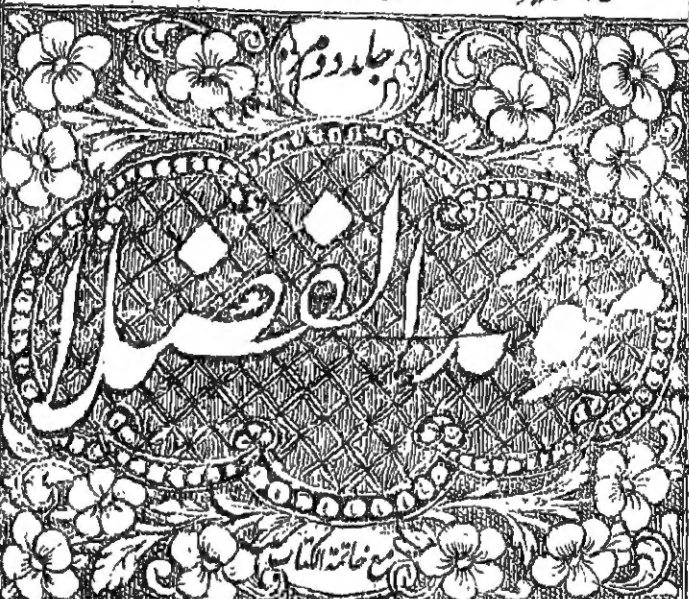 جلد دوم
مؤيد الفضلا
مع خاتمة الكتاب